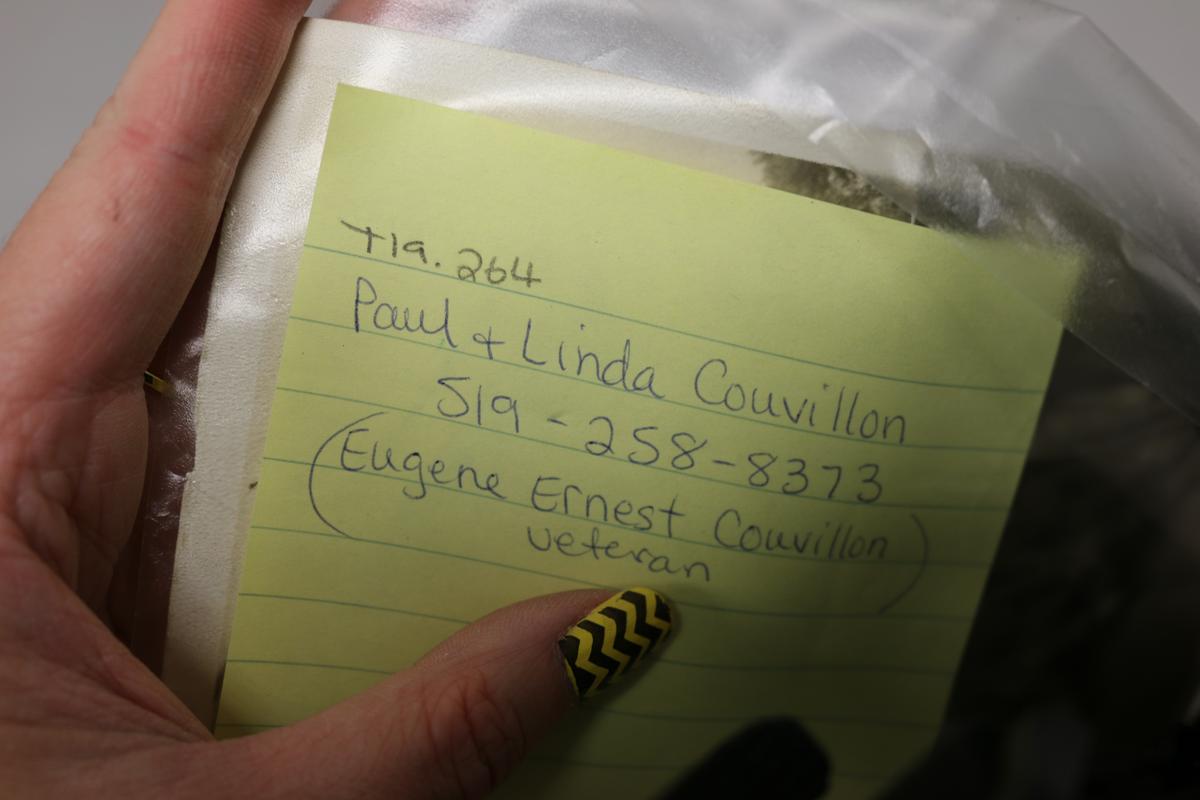 T19.264
Paul + Linda Couvillon
519-258-8373
(Eugene Ernest Couvillon)
veteran